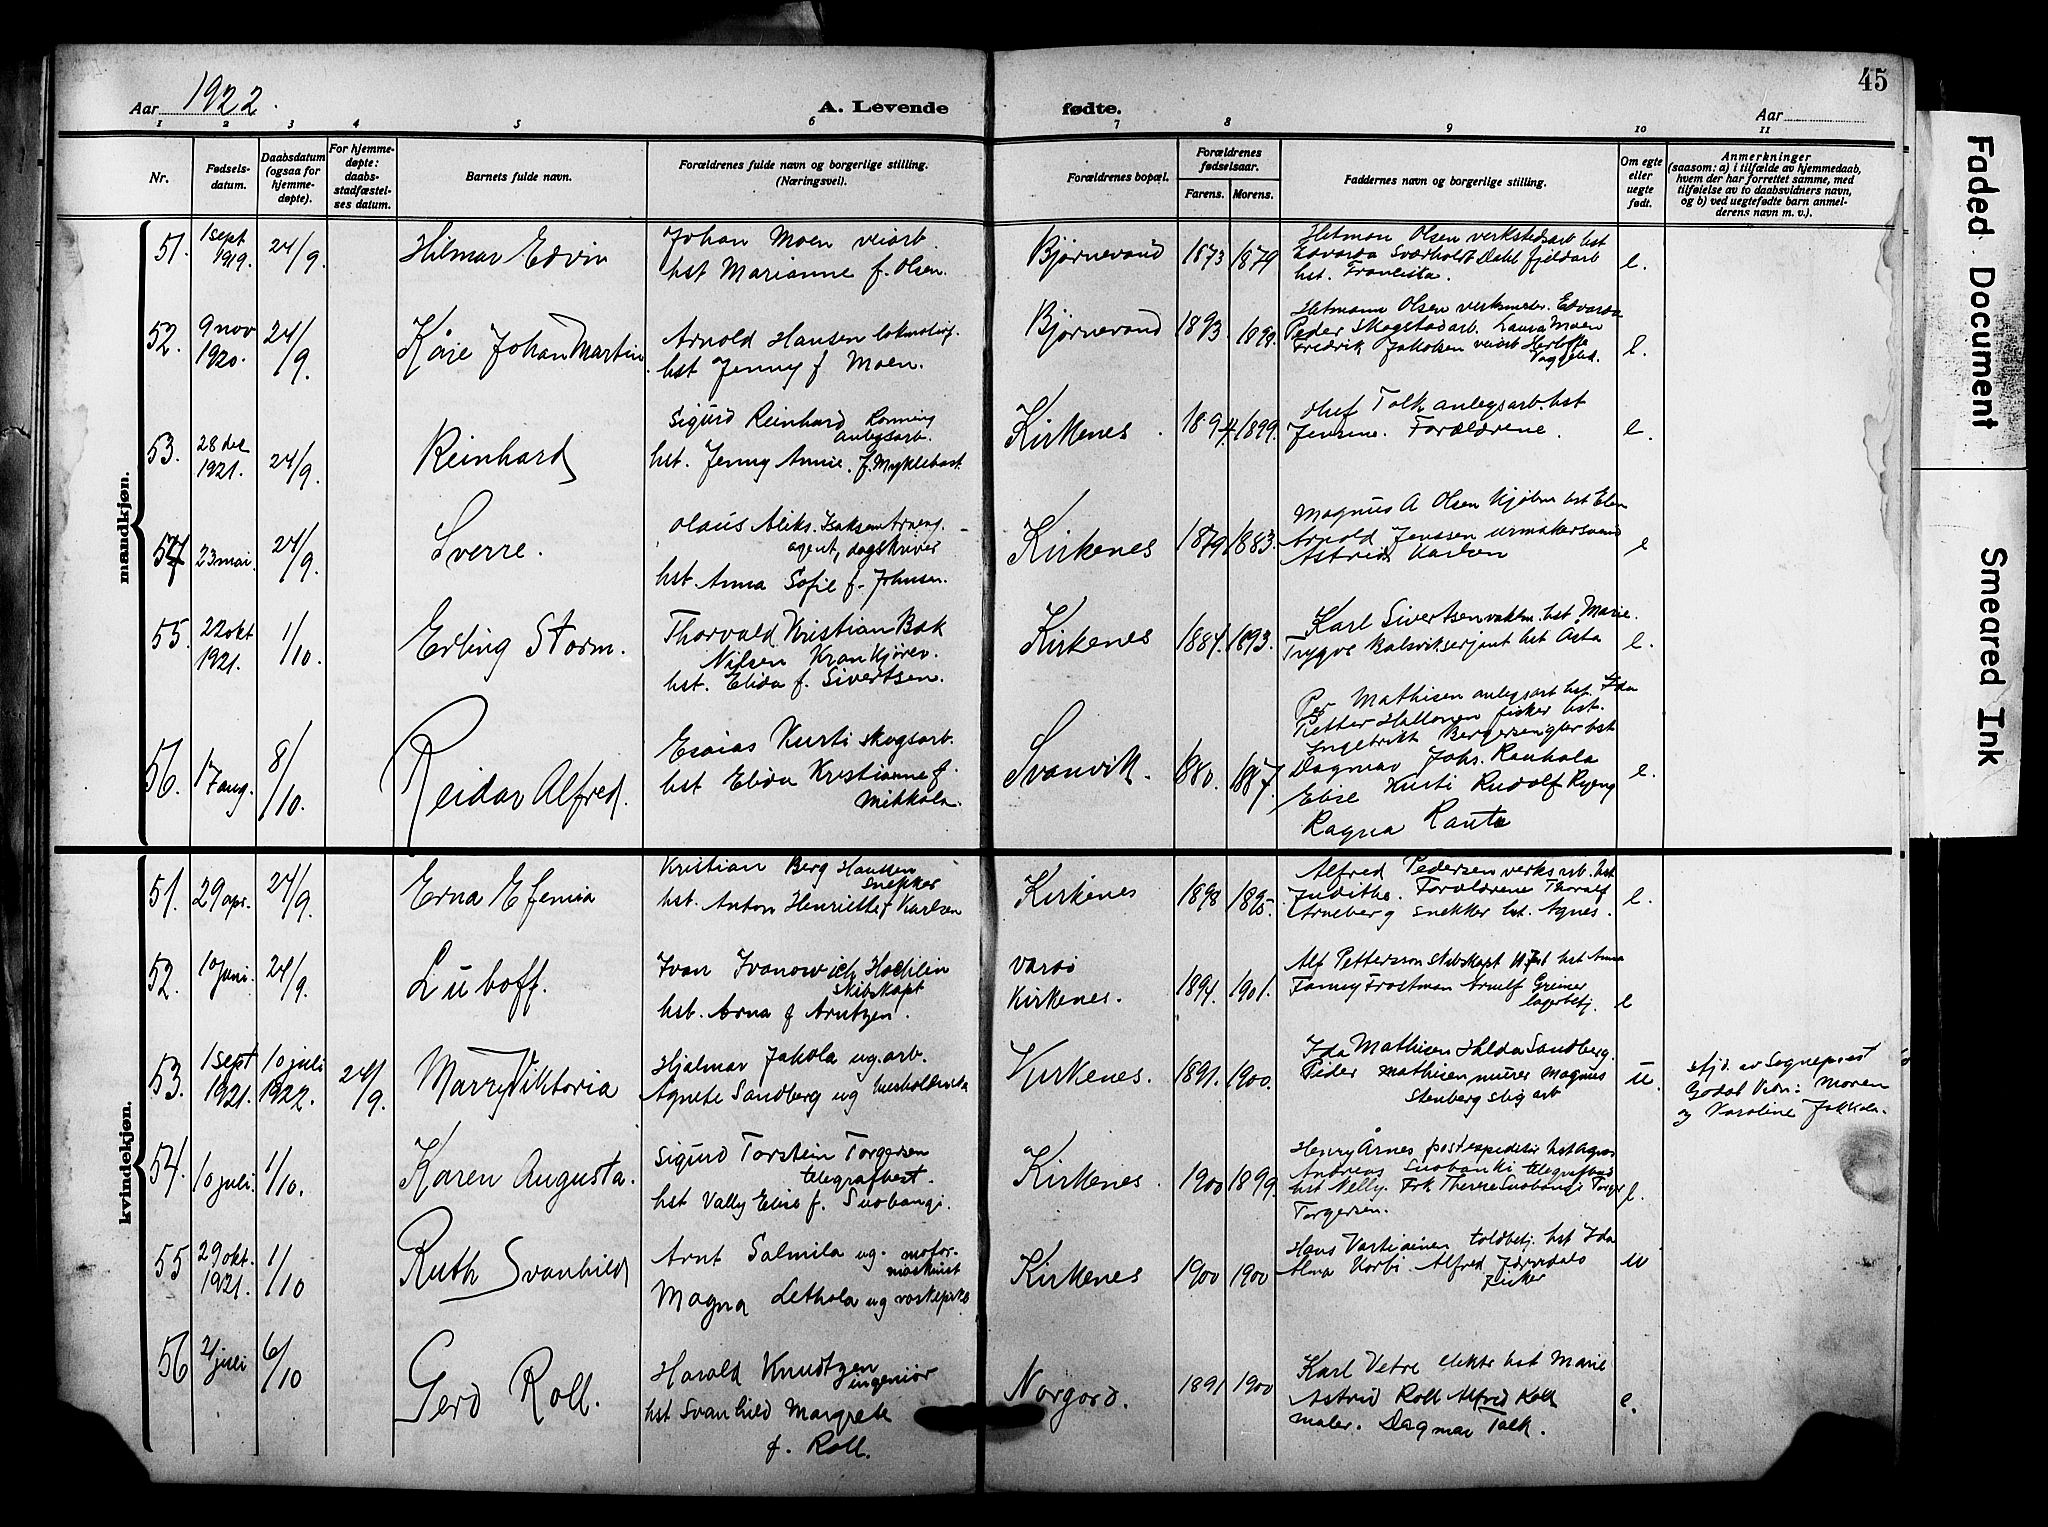 45
Aar 1922.
A. Levende fødte.
Aar
1 2 3 4 5 6 7 8 9 10 11
Nr.
Fødsels-
datum.
Daabsdatum
(ogsaa for
hjemme-
døpte).
For hjemme-
døpte:
daabs-
stadfæstel-
ses datum.
Barnets fulde navn.
Forældrenes fulde navn og borgerlige stilling.
(Næringsvei).
Forældrenes bopæl.
Forældrenes
fødselsaar.
Farens. Morens.
Faddernes navn og borgerlige stilling.
Om egte
eller
uegte
født.
Anmerkninger
(saasom: a) i tilfælde av hjemmedaab,
hvem der har forrettet samme, med
tilføielse av to daabsvidners navn,
og b) ved uegtefødte barn anmel-
derens navn m. v.).
mandkjøn.
51. 1 sept 1919. 24/9. Hilmar Edvin
Johan Moen veiarb.
hst Marianne f. Olsen.
Bjørnevand 1873 1879
Hetman Olsen verkstedsarb hst
Edvarda Sværholt Dahl fjeldarb
hst. Franciska.
e.
52. 9 nov 1920. 24/9. Kåre Johan Martin
Arnold Hansen
hst Jenny f Moen.
Bjørnevand 1893.
Hetmann Olsen Edvarda
Peder Skogstad arb. Laura Moen
Fredrik Jakobsen
e.
53. 28 dec 1921. 24/9. Reinhard
Sigurd Reinhard Rønning
anlegsarb.
hst. Jenny Annie. f. Myklebost
Kirkenes. 1894 1899.
Oluf Falk anlegsarb. hst
Jensine. Forældrene.
e.
54 23 mai. 24/9. Sverre.
Olaus Aleks. Isaksen Arneng.
agent, dagskriver
hst. Anna Sofie f. Johnsen.
Kirkenes 1879 1883.
Magnus A Olsen hst
Arnold Jenssen urmakersvend
Astrid Karlsen
e
55. 22 okt 1921. 1/10. Erling Storm.
Thorvald Kristian Bak
Nilsen Krankjørev.
hst. Elida f. Sivertsen.
Kirkenes 1884. 1893.
Karl Sivertsen vaktm. hst Marie.
Trygve Balsvik serjant hst Asta
e.
56. 17 aug. 8/10. Reidar Alfred.
Esaias Kurti skogsarb.
hst Elida Kristianne f.
Mikkola.
Svanvik. 1880. 1887.
Per Mathisen anlegsarb hst. Ida
Petter Hallonen fisker hst.
Ingebrikt Bergersen hst
Dagmar Johs. Rauhala
Elise Kurti Rudolf Ryeng
Ragna Ranta
e.
kvindekjøn.
51. 29 apr. 24/9. Erna Efemia
Kristian Berg Hanssen
snekker
hst. Anton Henriette f Karlsen
Kirkenes 1898 1895.
Alfred Pedersen verksarb. hst
Judithe. Forældrene Thoralf
Arneberg snekker hst. Agnes.
e.
52. 10 juni. 24/9. Luboff.
Ivan Ivanowich
skibskapt
hst. Arna f Arntzen.
Vardø
Kirkenes. 1894. 1901.
Alf Pettersson skibskapt hst Anna
Fanny Frostman Arnulf Greiner
lagerbetj.
e
53. 1 sept 1921. 10 juli 1922. 24/9. Marry Viktoria
Hjalmar Jakola ug. arb.
Agnete Sandberg ug husholderske
Kirkenes. 1891. 1900.
Ida Mathisen Hilda Sandberg.
Peder Mathisen murer Magnus
Stenberg slig arb
u.
hjd. av Sogneprest
Godal Vidn: Moren
og Karoline Jakkola.
54. 10 juli. 1/10. Karen Augusta.
Sigurd Torstein Torgersen
telegrafbest.
hst Vally Elise f. Suobangi.
Kirkenes. 1900 1899.
Henry Årnes postexpeditør hst Agnes
Andreas Suobanki telegrafbud
hst Nelly. Frk Therese Suobangi
Torgersen.
e.
55 29 okt. 1921. 1/10 Ruth Svanhild
Arnt Salmila ug. motor-
maskinist
Magna Lethola ug vaskepike
Kirkenes 1900 1900
Hans Vartiainen toldbetj. hst Ida
Alma Korbi Alfred
fisker
u
56 21 juli 6/10 Gerd Roll.
Harald Knudtzen
ingeniør
hst Svanhild Margrete
f. Roll.
Norgård. 1891 1900
Karl Vetre elektr hst Marie
Astrid Roll Alfred Roll
maler. Dagmar Falk.
e.
Faded Document
Smeared Ink